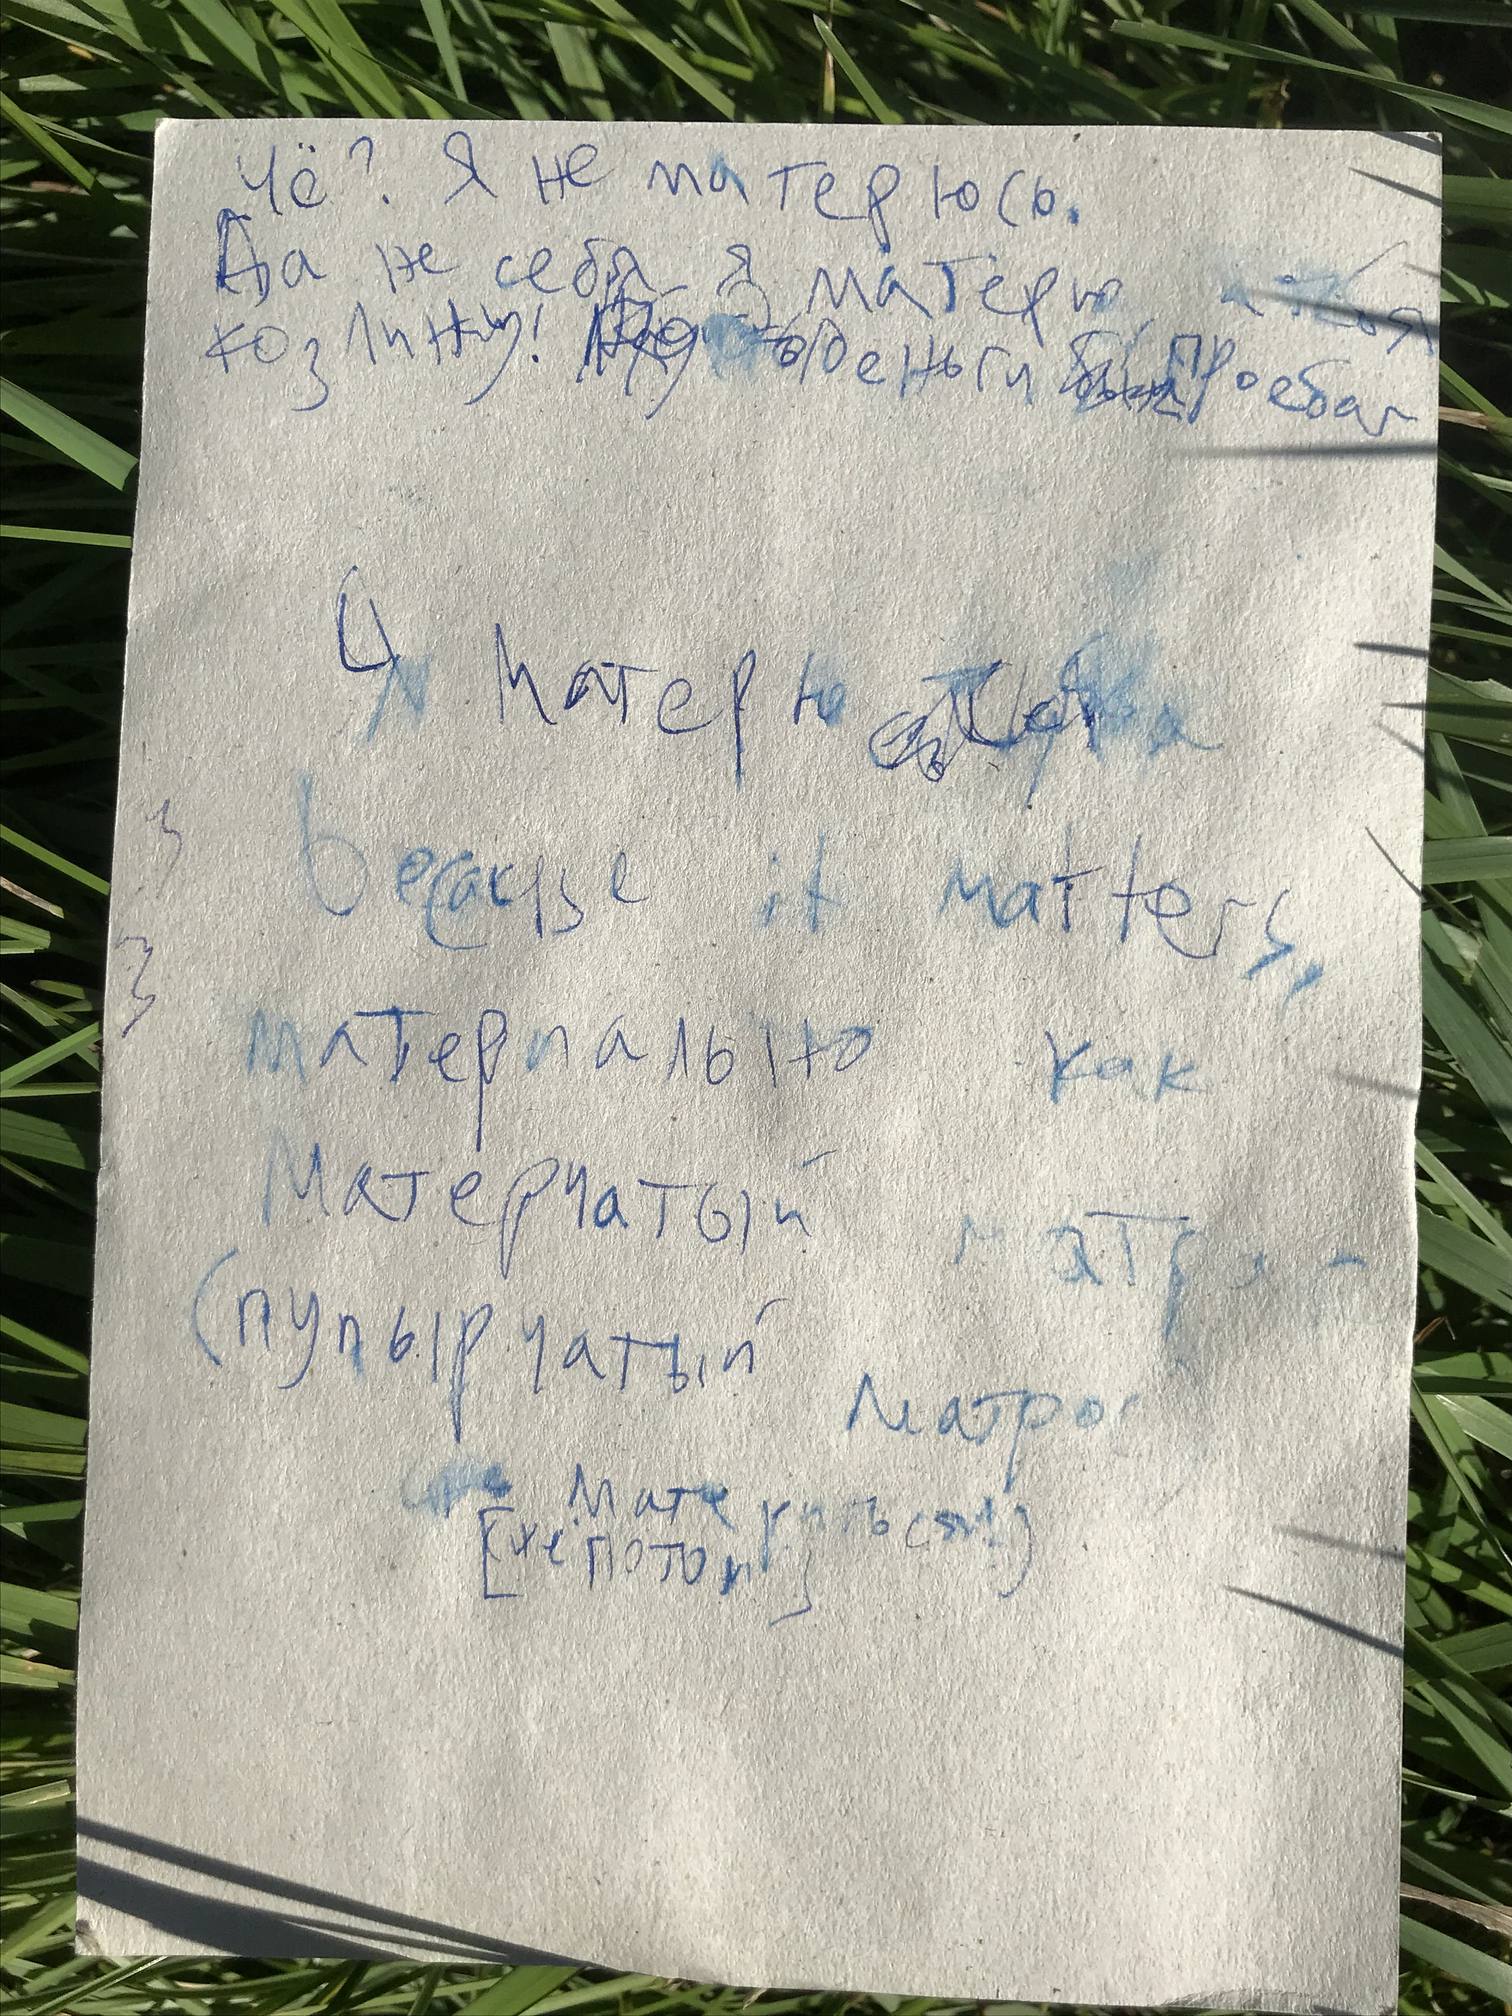 Чё? Я не матерюсь.
Да не себя я матерю а тебя
козлину! деньги проебал
Я матерю тебя
because it matters,
материально как
матерчатый
(пупырчатый
матрос
матерится!)
[не потом]